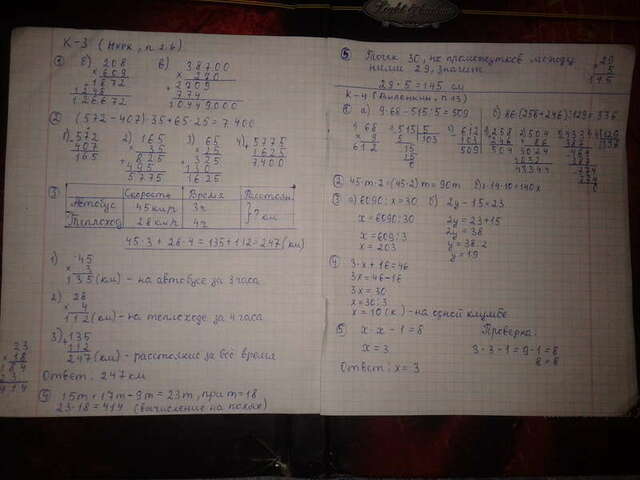 К-3 (Нурк, п. 2.6)
① б) 208 в) 38700
× 609 × 270
1872 + 2709
1248 774
126672 10449000
② (572 - 407)·35 + 65·25 = 7400
1) 572 2) 165 3) 65 4) 5775
407 × 35 × 25 1625
165 825 325 7400
495 130
5775 1625
③ Скорость Время Расстоян.
Автобус 45 км/ч 3ч } ? км
Теплоход 28 км/ч 4ч
45·3 + 28·4 = 135 + 112 = 247 (км)
1) 45
× 3
135 (км) - на автобусе за 3 часа
2) 28
× 4
112 (км) - на теплоходе за 4 часа
3) 135
112
247 (км) - расстояние за всё время
Ответ: 247 км
④ 15m + 17m - 9m = 23m, при m = 18
23·18 = 414 (вычисление на полях)
23
× 18
184
23
414
⑤ Точек 30, но промежутков между
ними 29, значит
29·5 = 145 см
29
5
145
К-4 (Виленкин, п. 13)
① а) 9·68 - 515:5 = 509 б) 86·(258+246)
② 45·m·2 = (45·2)m = 90m
③ а) 6090:x = 30 б) 2y - 15 = 23
x = 6090:30 2y = 23 + 15
x = 609:3 2y = 38
x = 203 y = 38:2
y = 19
④ 3·x + 16 = 46
3x = 46 - 16
3x = 30
x = 30:3
x = 10 (к) - на одной клумбе
⑤ x·x - 1 = 8 Проверка:
x = 3 3·3 - 1 = 9 - 1 = 8
8 = 8
Ответ: x = 3